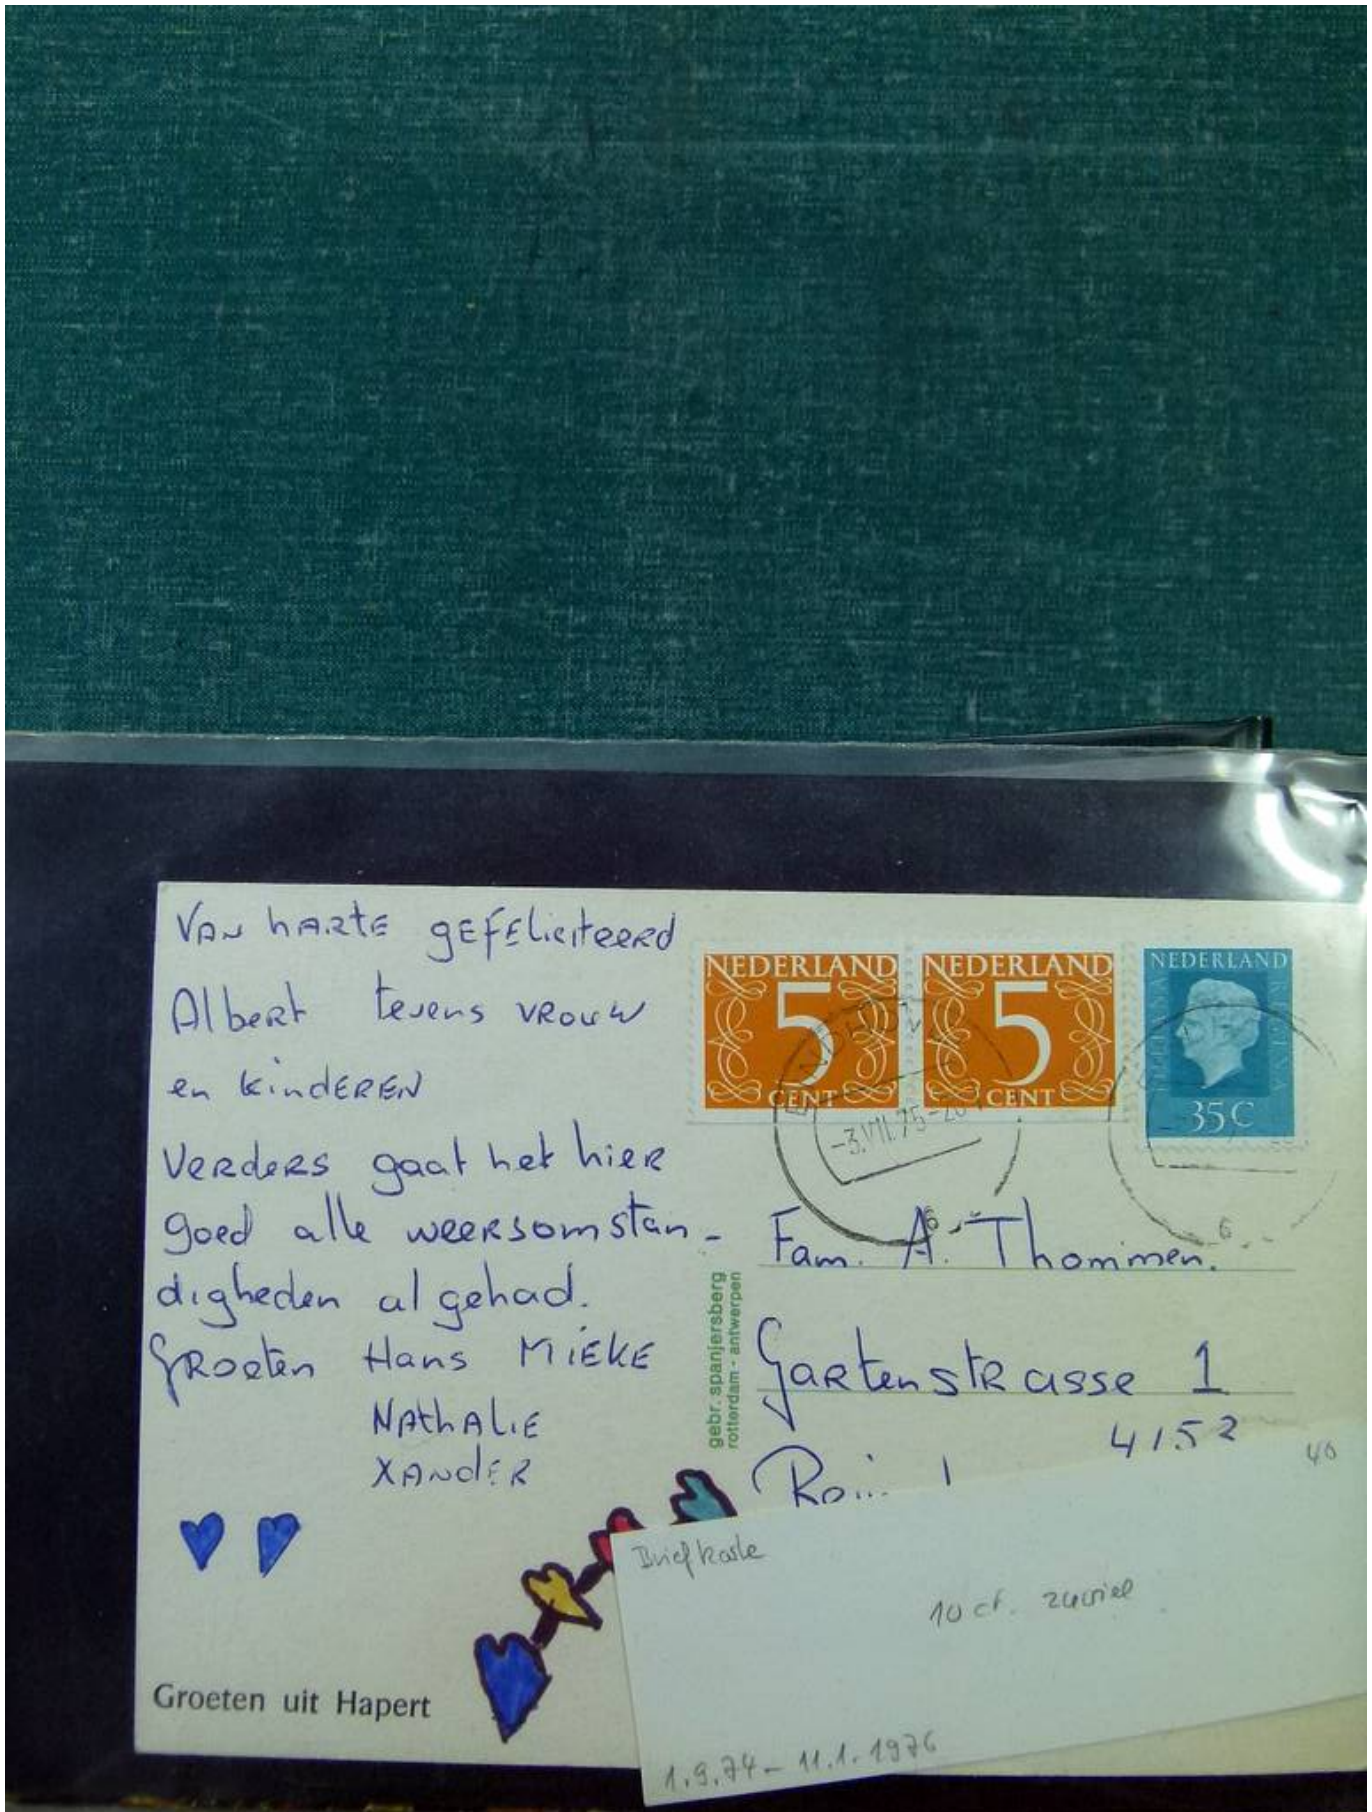 VAN hARTE gEfEliciteerd
Albert tevens vrouw
en kindEREN
Verders gaat het hier
goed alle weersomstan-
digheden al gehad.
Groeten Hans MiEKE
NAthALiE
XANdER
Groeten uit Hapert
gebr. spanjersberg
rotterdam - antwerpen
NEDERLAND
5
CENT
NEDERLAND
5
CENT
NEDERLAND
35 C
6
6
Fam. A. Thommen.
Gartenstrasse 1
4152
40
Briefkarte
10 ct. zuviel
1.9.74 - 11.1.1976